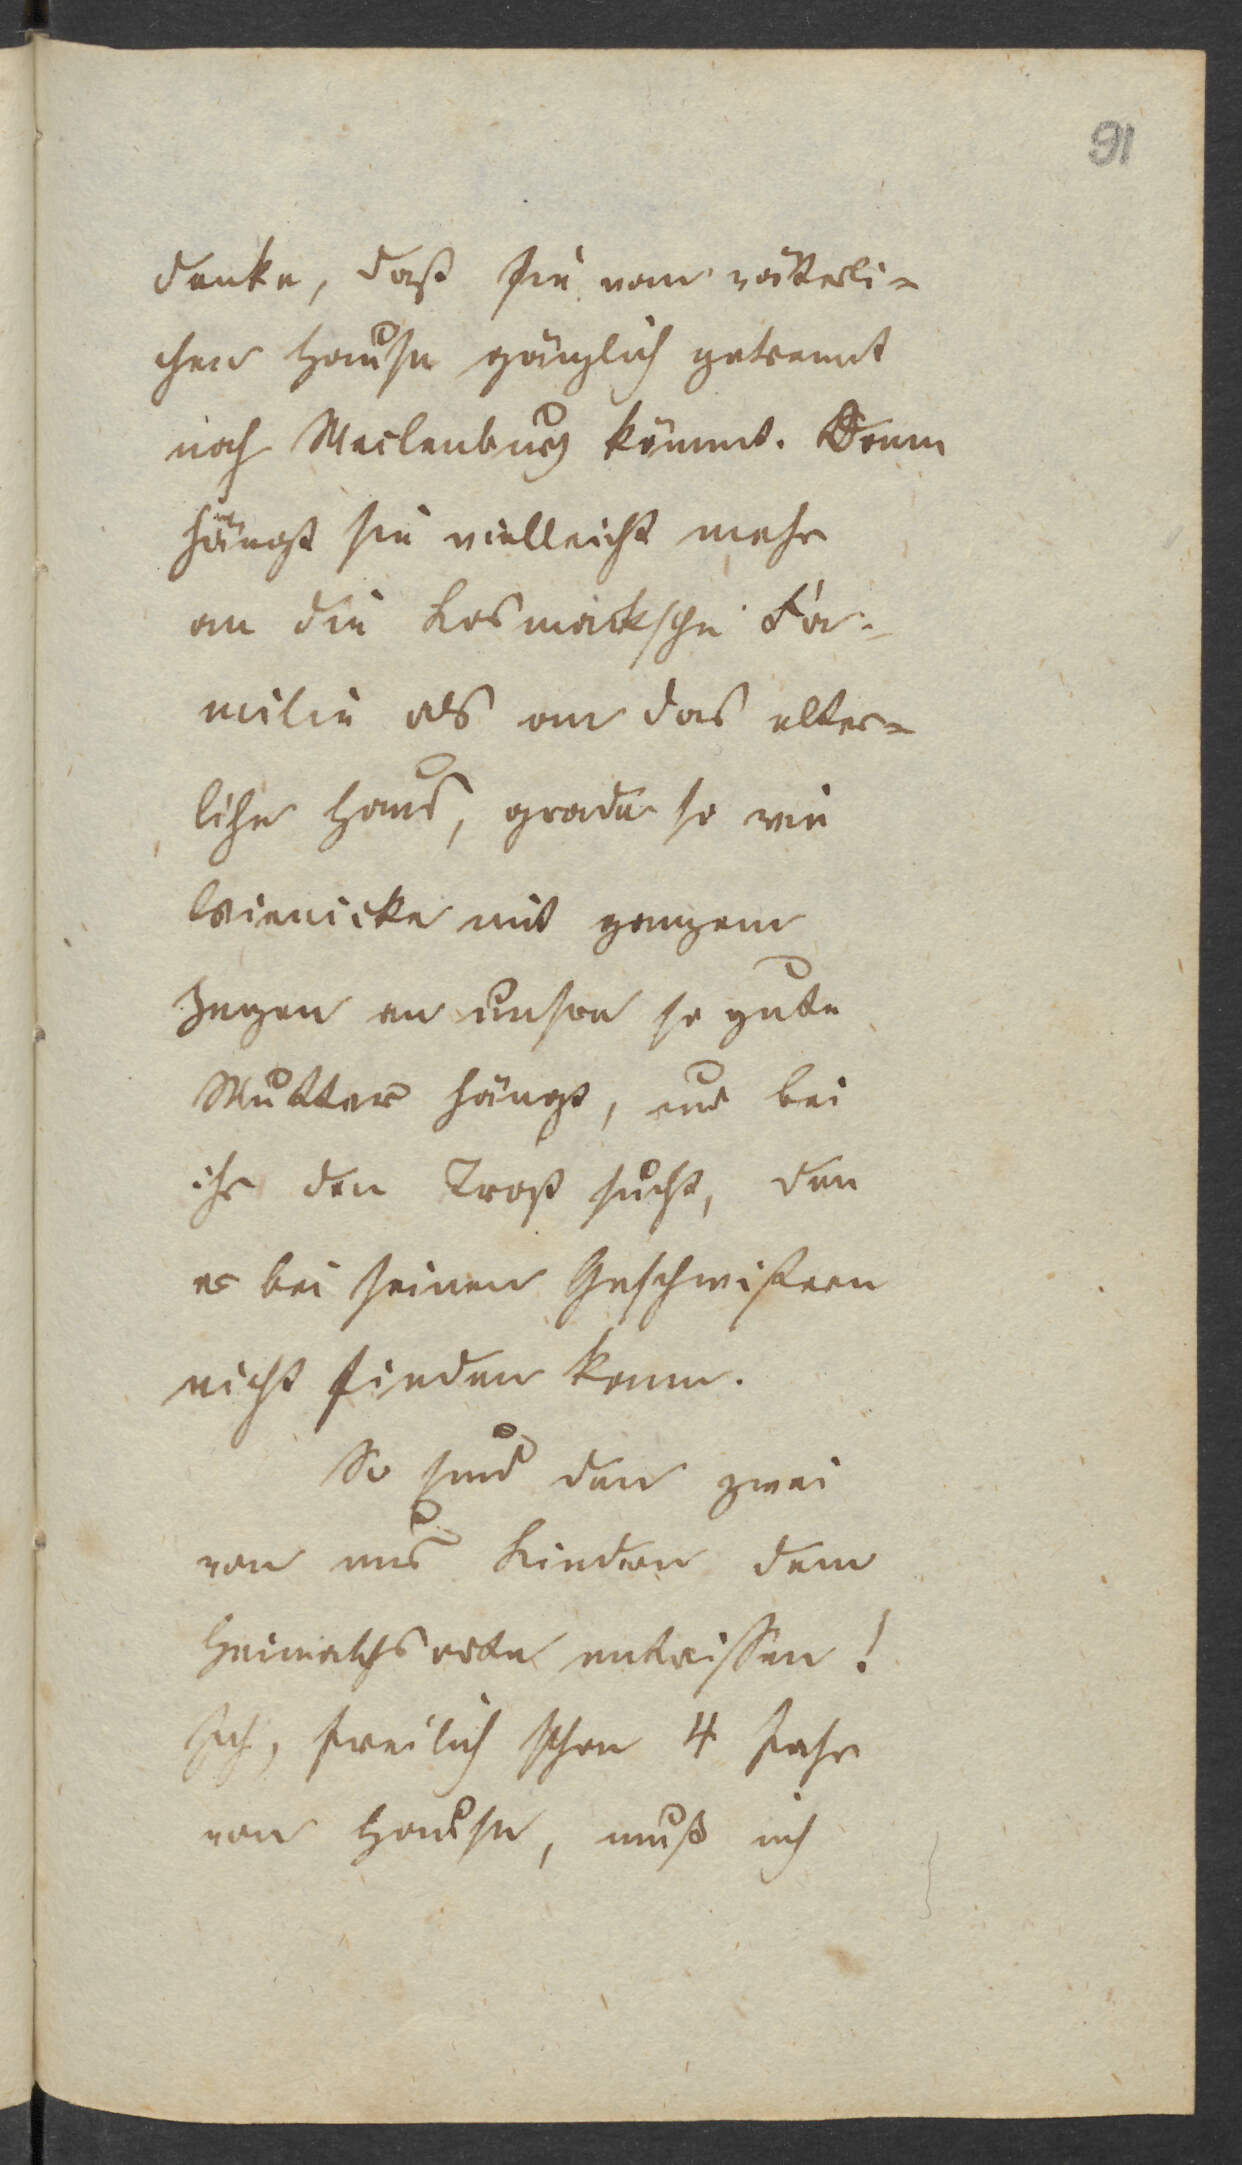 91
denke, daß sie vom väterli=
chen Hause gänzlich getrennt
nach Meclenburg kömmt. Denn
hängt sie vielleicht mehr
an die Kosmacksche Fa=
milie als an das elter=
liche Haus, grade so wie
Wienicke mit ganzem
Herzen an unsre so gute
Mutter hängt, und bei
ihr den Trost sucht, den
er bei seinen Geschwistern
nicht finden kann.
So sind den zwei
von uns Kindern dem
Heimathsorte entrissen!
Ich, freilich schon 4 Jahr
von Hause, muß ich